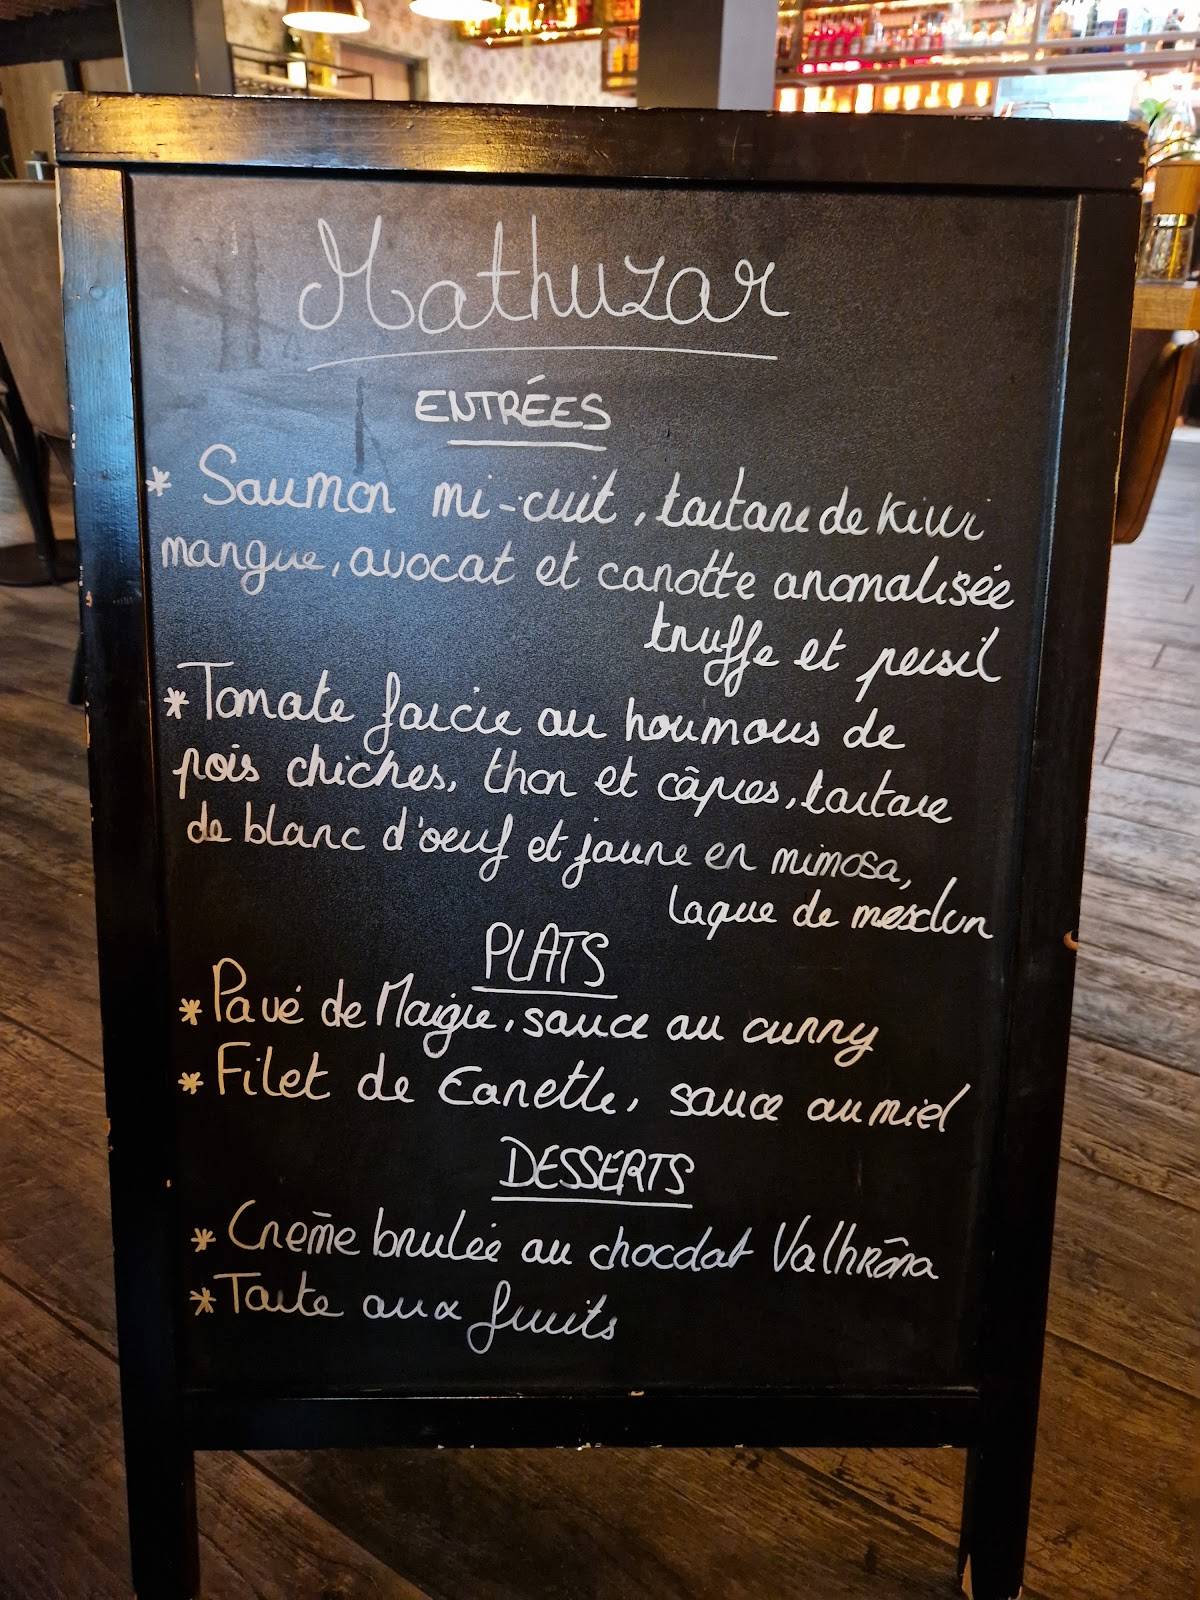 Mathuzar
ENTRÉES
* Saumon mi-cuit, tartare de kiwi
mangue, avocat et carotte anomalisée
truffe et persil
* Tomate farcie au houmous de
pois chiches, thon et câpres, tartare
de blanc d'oeuf et jaune en mimosa,
laque de mesclun
PLATS
* Pavé de Maigre, sauce au curry
* Filet de Canette, sauce au miel
DESSERTS
* Crème brulée au chocolat Valhrôna
* Tarte aux fruits